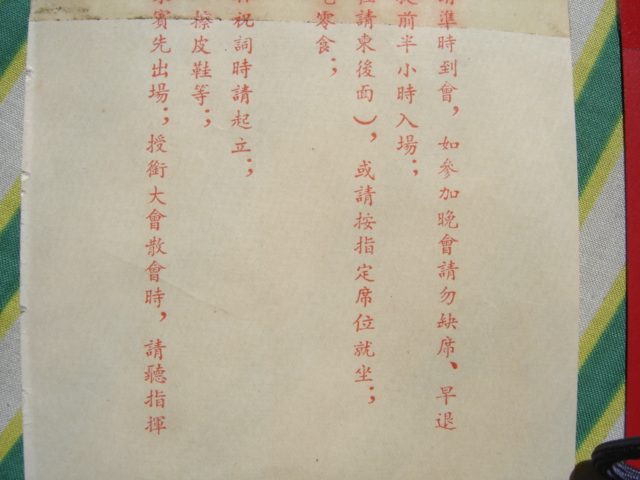 請準時到會，如參加晚會請勿缺席、早退
前半小時入場；
請柬後面），或請按指定席位就坐；
零食；
祝詞時請起立；
擦皮鞋等；
賓先出場；授銜大會散會時，請聽指揮